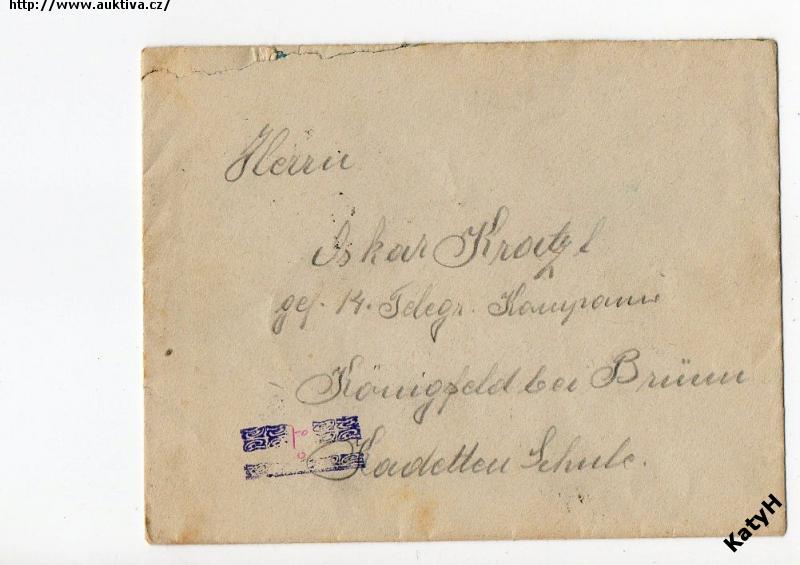 http://www.auktiva.cz/
Herrn
Oskar Kratzl
gef. 14. Telegr. Kompanie
Königfeld bei Brünn
Kadetten Schule.
KatyH